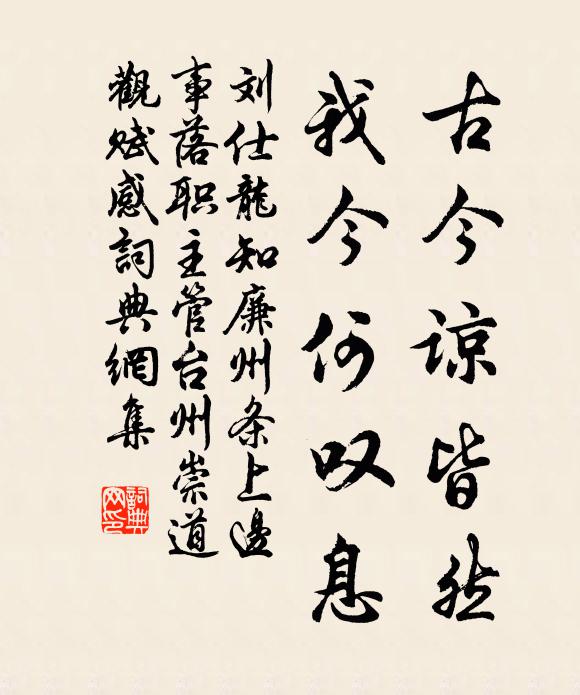 古今谅皆然
我今何叹息
刘仕龍知廉州条上邊
事落职主管台州崇道
觀赋感詞典網集
詞典网印